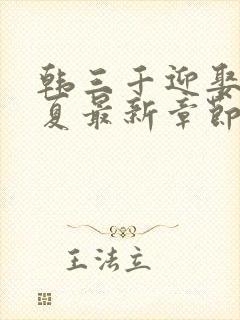 韩三千迎娶
夏最新章节
王法立